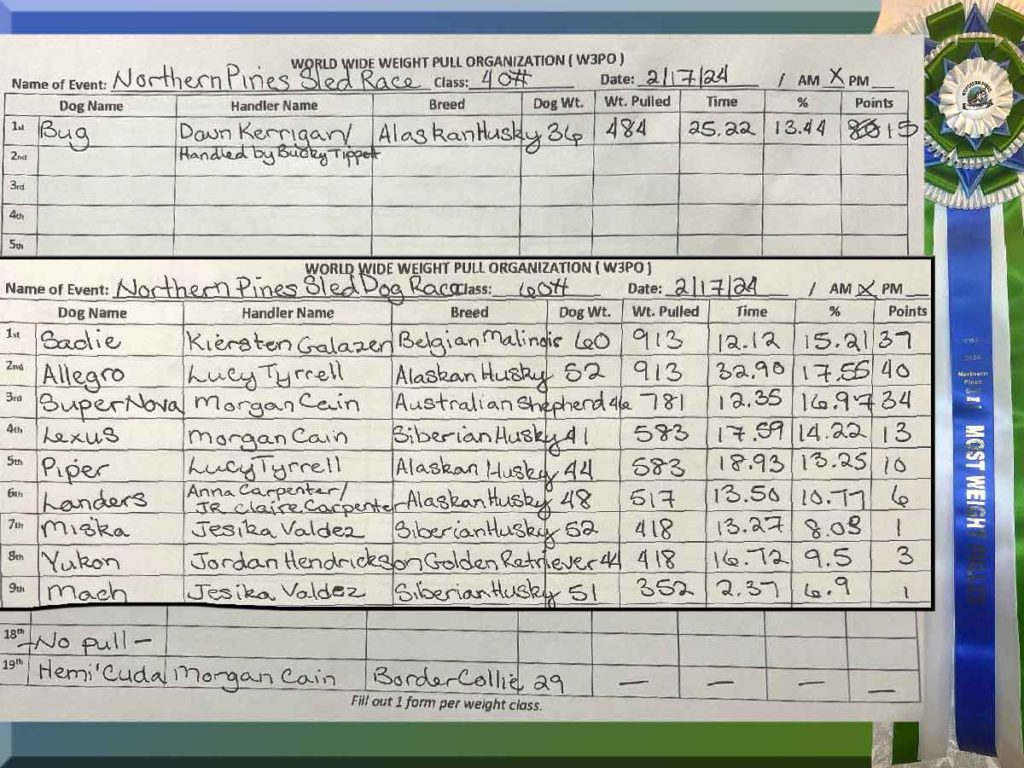 WORLD WIDE WEIGHT PULL ORGANIZATION ( W3PO )
Name of Event: Northern Pines Sled Race Class: 40# Date: 2/17/24 / AM X PM __
Dog Name Handler Name Breed Dog Wt. Wt. Pulled Time % Points
1st Bug Dawn Kerrigan/ Alaskan Husky 36 484 25.22 13.44 15
Handled by Bucky Tippett
2nd
3rd
4th
5th
WORLD WIDE WEIGHT PULL ORGANIZATION ( W3PO )
Name of Event: Northern Pines Sled Dog Race Class: 60# Date: 2/17/24 / AM X PM __
Dog Name Handler Name Breed Dog Wt. Wt. Pulled Time % Points
1st Sadie Kiersten Galazen Belgian Malinois 60 913 12.12 15.21 37
2nd Allegro Lucy Tyrrell Alaskan Husky 52 913 32.90 17.55 40
3rd SuperNova Morgan Cain Australian Shepherd 46 781 12.35 16.97 34
4th Lexus Morgan Cain Siberian Husky 41 583 17.59 14.22 13
5th Piper Lucy Tyrrell Alaskan Husky 44 583 18.93 13.25 10
6th Landers Anna Carpenter/ JR Claire Carpenter Alaskan Husky 48 517 13.50 10.77 6
7th Miska Jesika Valdez Siberian Husky 52 418 13.27 8.03 1
8th Yukon Jordan Hendrickson Golden Retriever 44 418 16.72 9.5 3
9th Mach Jesika Valdez Siberian Husky 51 352 2.37 6.9 1
18th -No pull-
19th Hemi'Cuda Morgan Cain Border Collie 29 — — — —
Fill out 1 form per weight class.
Northern
Pines
MOST WEIGHT